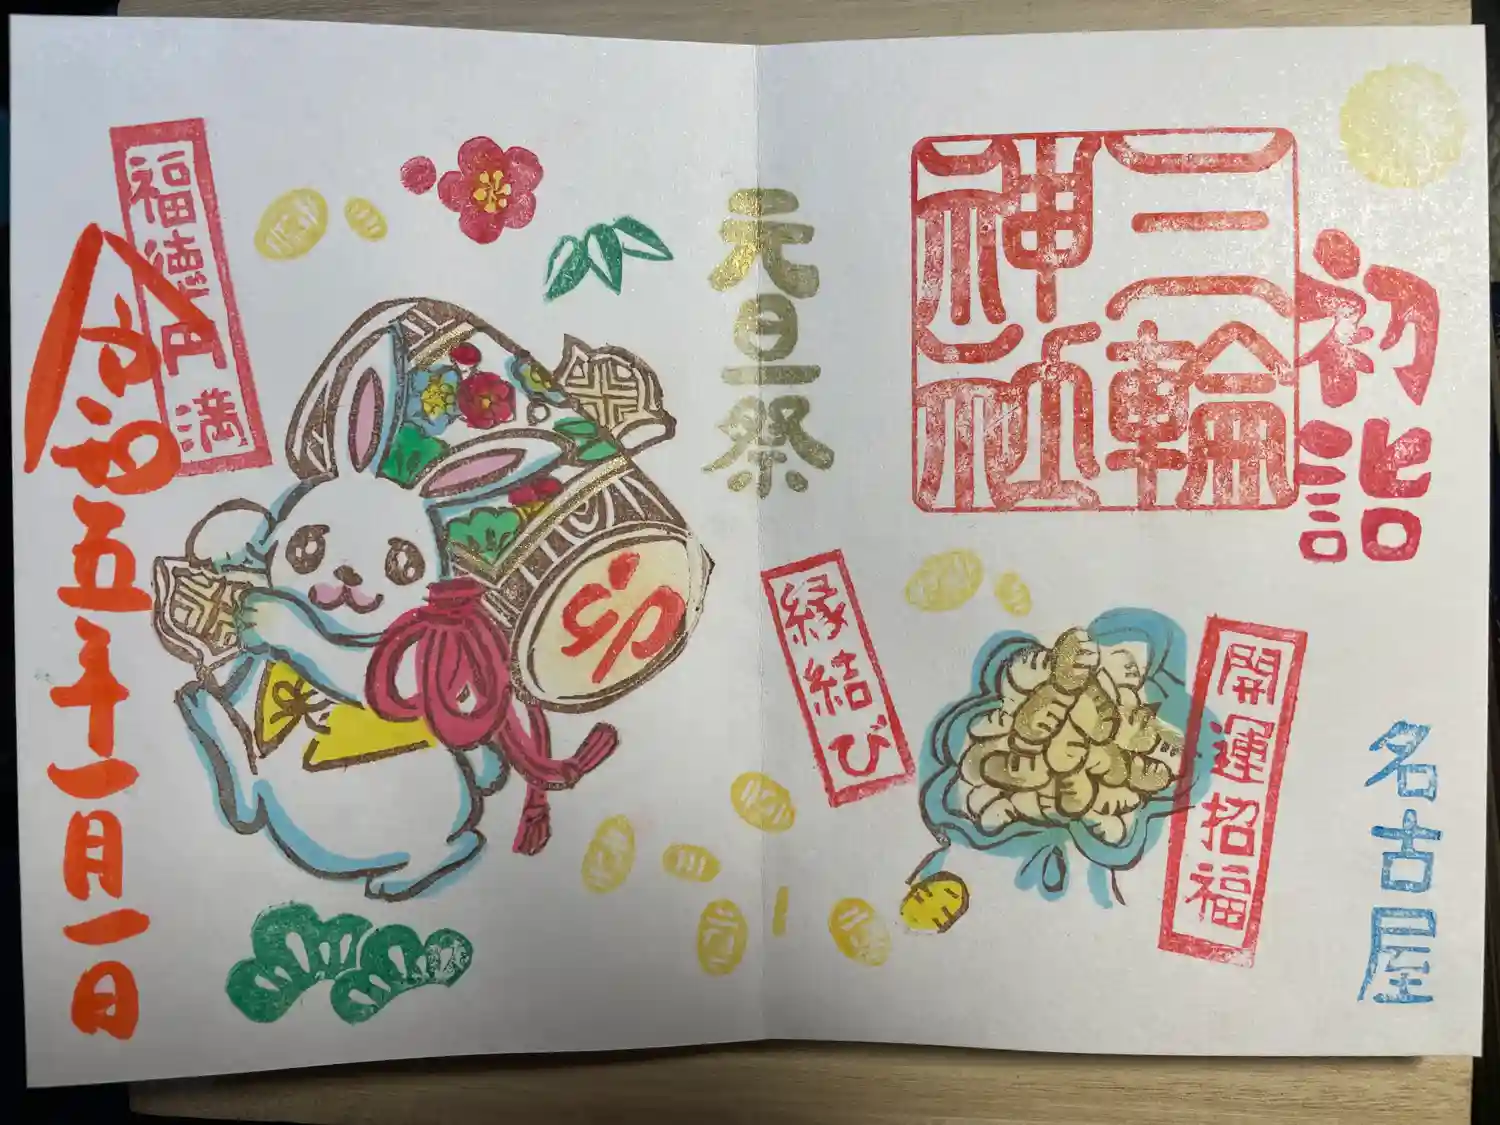 初詣
三輪
神社
名古屋
開運招福
縁結び
元旦祭
卯
福徳円満
令和五年一月一日